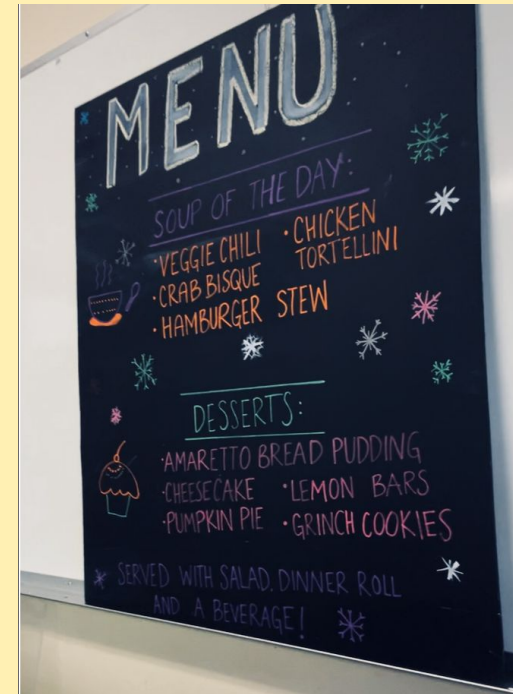 MENU
SOUP OF THE DAY:
·VEGGIE CHILI
·CRAB BISQUE
·HAMBURGER STEW
·CHICKEN
TORTELLINI
DESSERTS:
·AMARETTO BREAD PUDDING
·CHEESECAKE ·LEMON BARS
·PUMPKIN PIE ·GRINCH COOKIES
SERVED WITH SALAD, DINNER ROLL
AND A BEVERAGE!